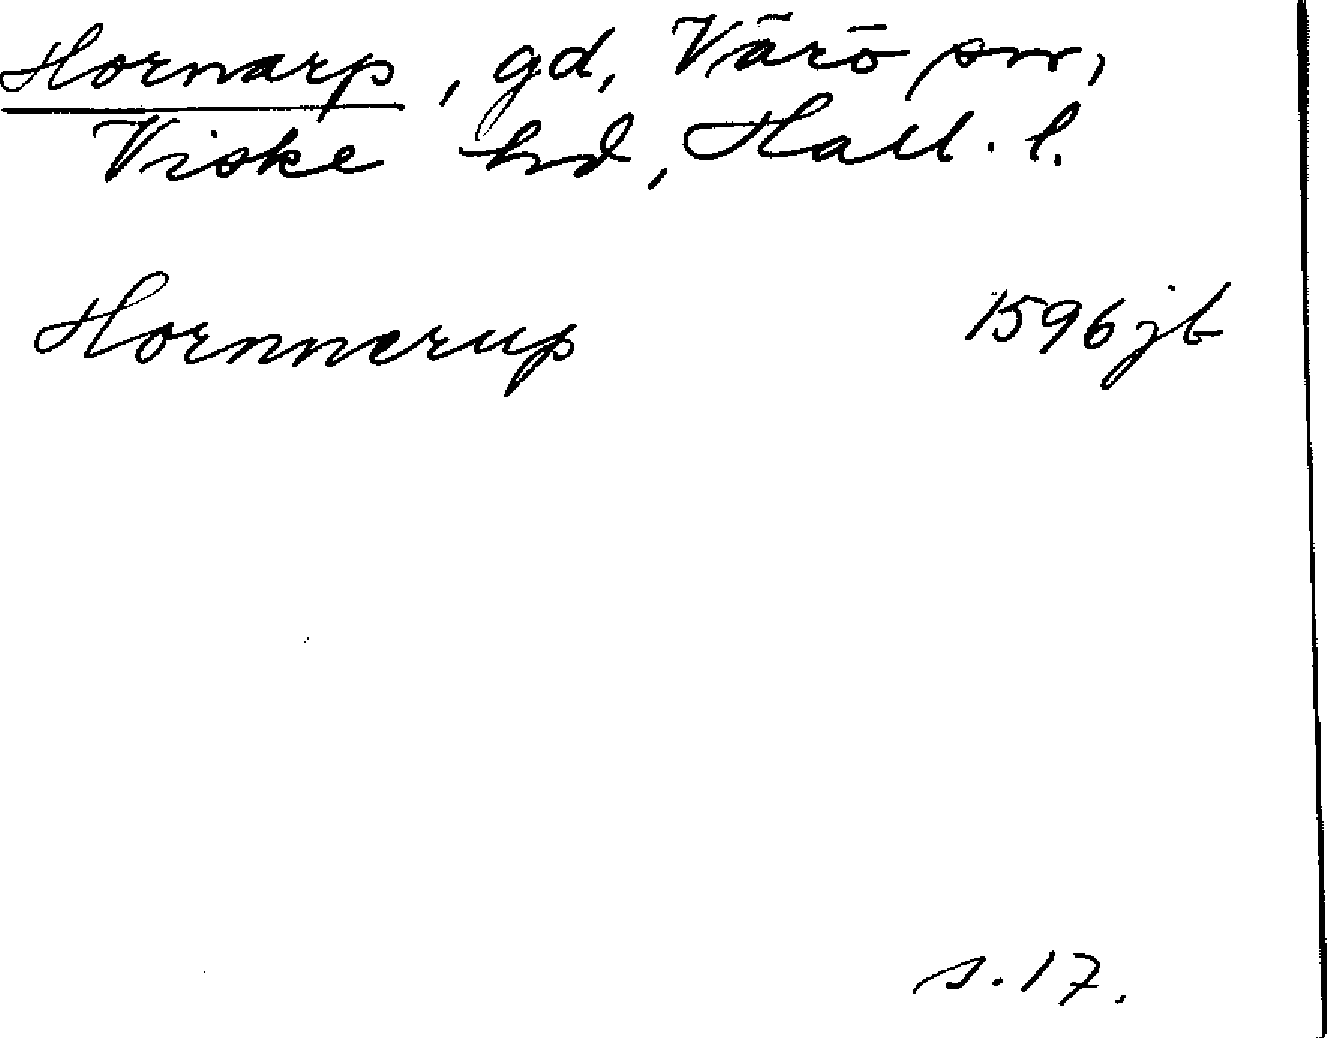 Hornarp, gd, Värö sn,
Viske hd, Hall. l.
Hornnerup 1596 jb
s. 17.